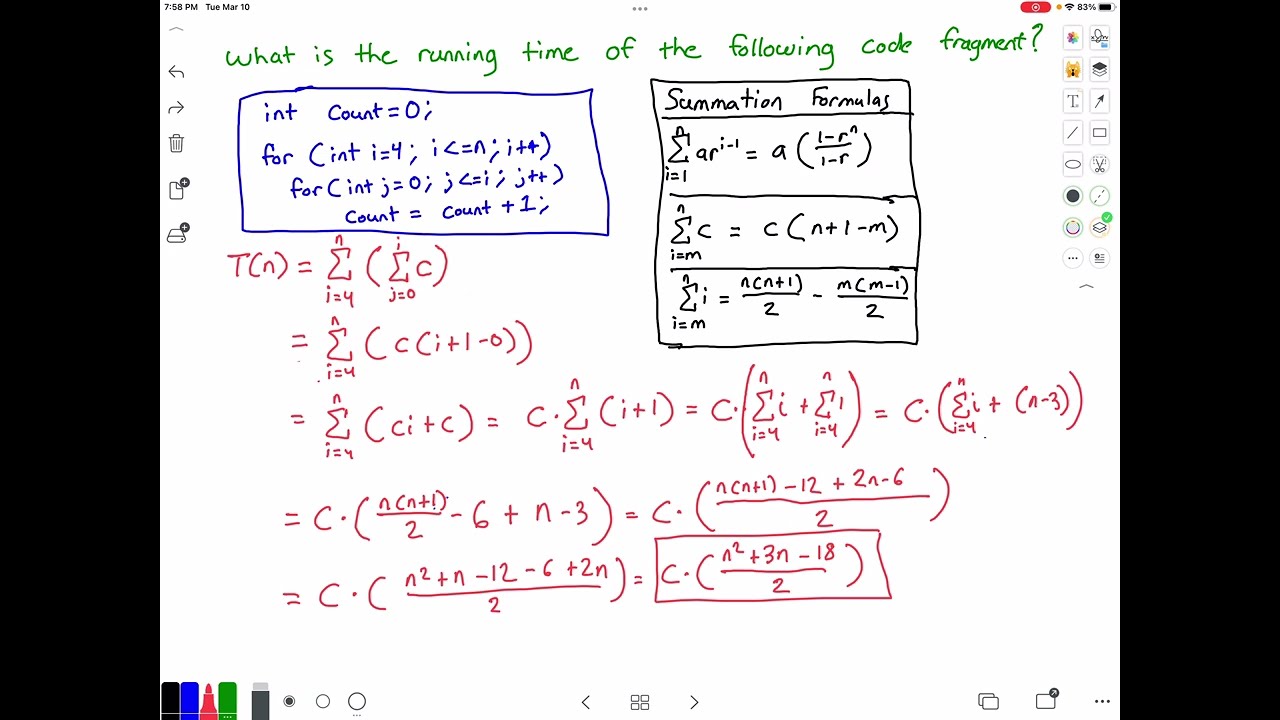 7:58 PM Tue Mar 10
83%
what is the running time of the following code fragment?
int count=0;
for (int i=4; i<=n; i++)
for(int j=0; j<=i; j++)
count = count +1;
Summation Formulas
n∑i=1 ar^(i-1) = a (1-rⁿ/1-r)
n∑i=m c = c(n+1-m)
n∑i=m i = n(n+1)/2 - m(m-1)/2
T(n) = n∑i=4 ( i∑j=0 c)
= n∑i=4 ( c(i+1-0))
= n∑i=4 (ci+c) = c·n∑i=4 (i+1) = c·(n∑i=4 i + n∑i=4 1) = c·(n∑i=4 i + (n-3))
= c·(n(n+1)/2 - 6 + n-3) = c·(n(n+1) -12 + 2n-6/2)
= c·(n²+n-12-6+2n/2) = c·(n²+3n-18/2)
T